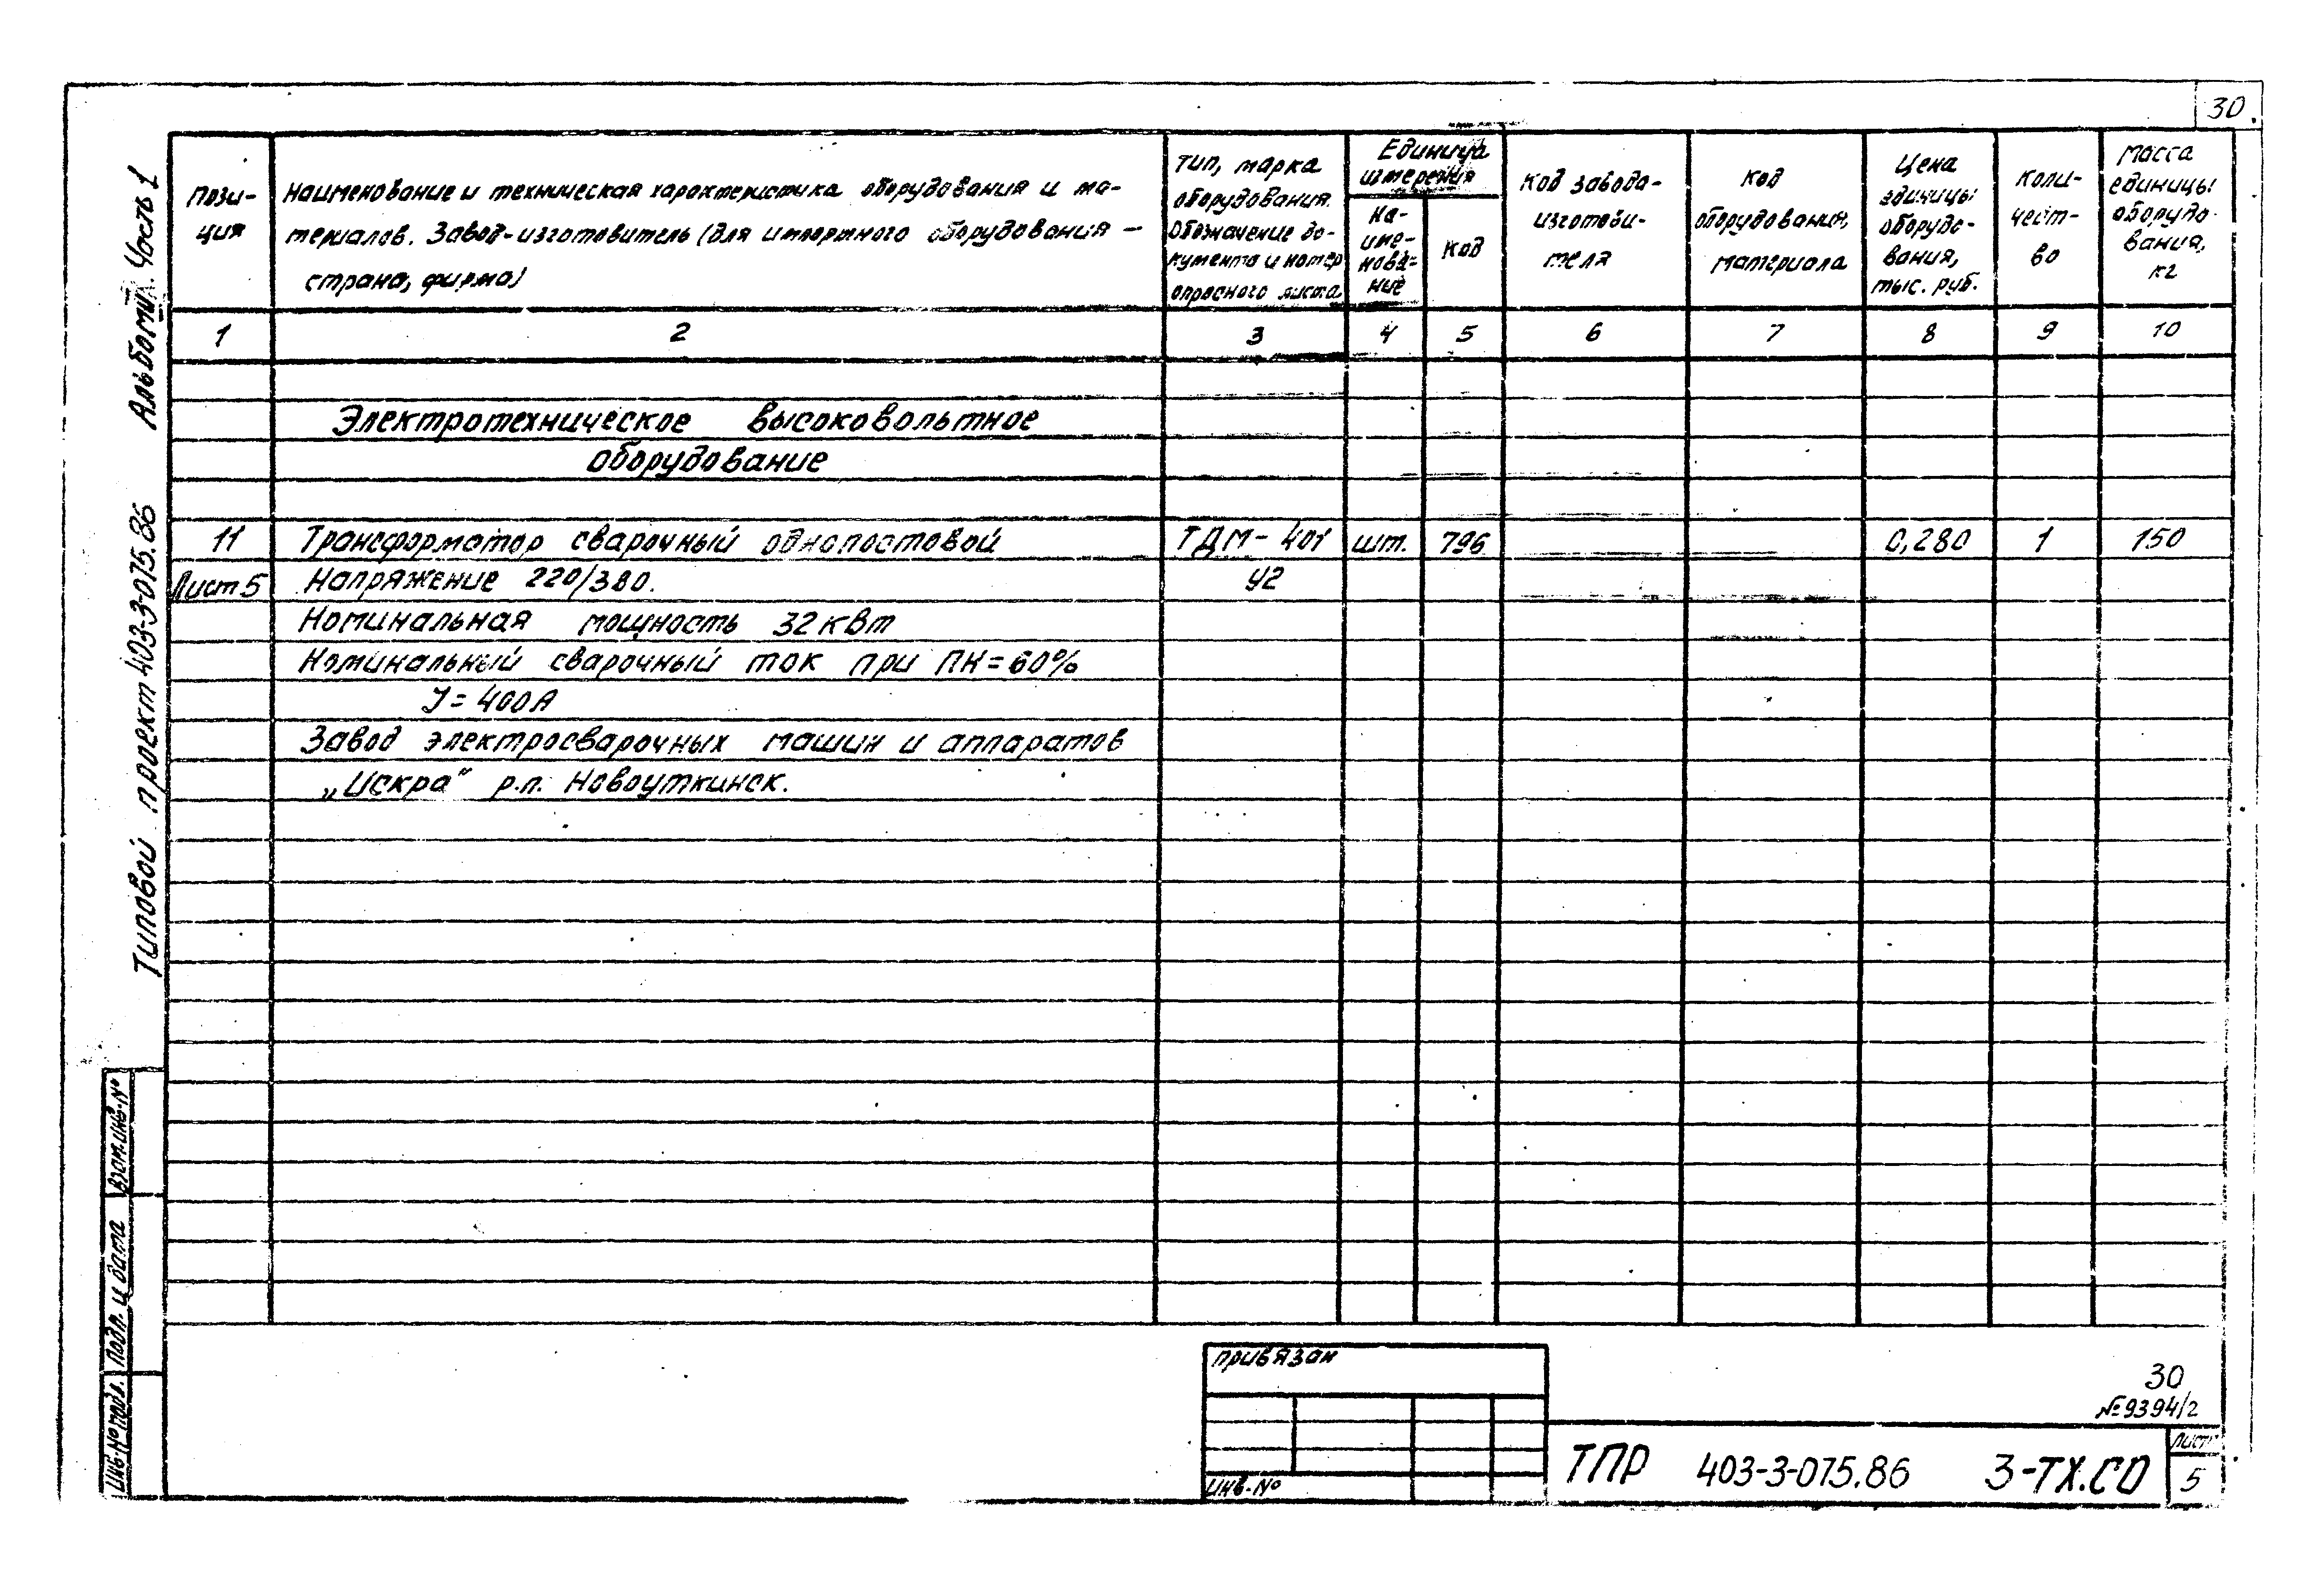 30
Пози-
ция
Наименование и техническая характеристика оборудования и ма-
териалов. Завод-изготовитель (для импортного оборудования —
страна, фирма)
Тип, марка
оборудования.
Обозначение до-
кумента и номер
опросного листа
Единица
измерения
На-
име-
нова-
ние
Код
Код завода-
изготови-
теля
Код
оборудования,
материала
Цена
единицы
оборудо-
вания,
тыс. руб.
Коли-
чест-
во
Масса
единицы
оборудо-
вания,
кг
1 2 3 4 5 6 7 8 9 10
Электротехническое высоковольтное
оборудование
11 Трансформатор сварочный однопостовой ТДМ-401 шт. 796 0,280 1 150
Лист 5 Напряжение 220/380. У2
Номинальная мощность 32 квт
Номинальный сварочный ток при ПН=60%
J=400А
Завод электросварочных машин и аппаратов
„Искра" р.п. Новоуткинск.
Типовой проект 403-3-075.86 Альбом Часть 1
Взам.инв.№
Подп. и дата
Инв.№ подл.
Привязан
Инв.№
30
№9394/2
ТПР 403-3-075.86 3-ТХ.СО
Лист
5